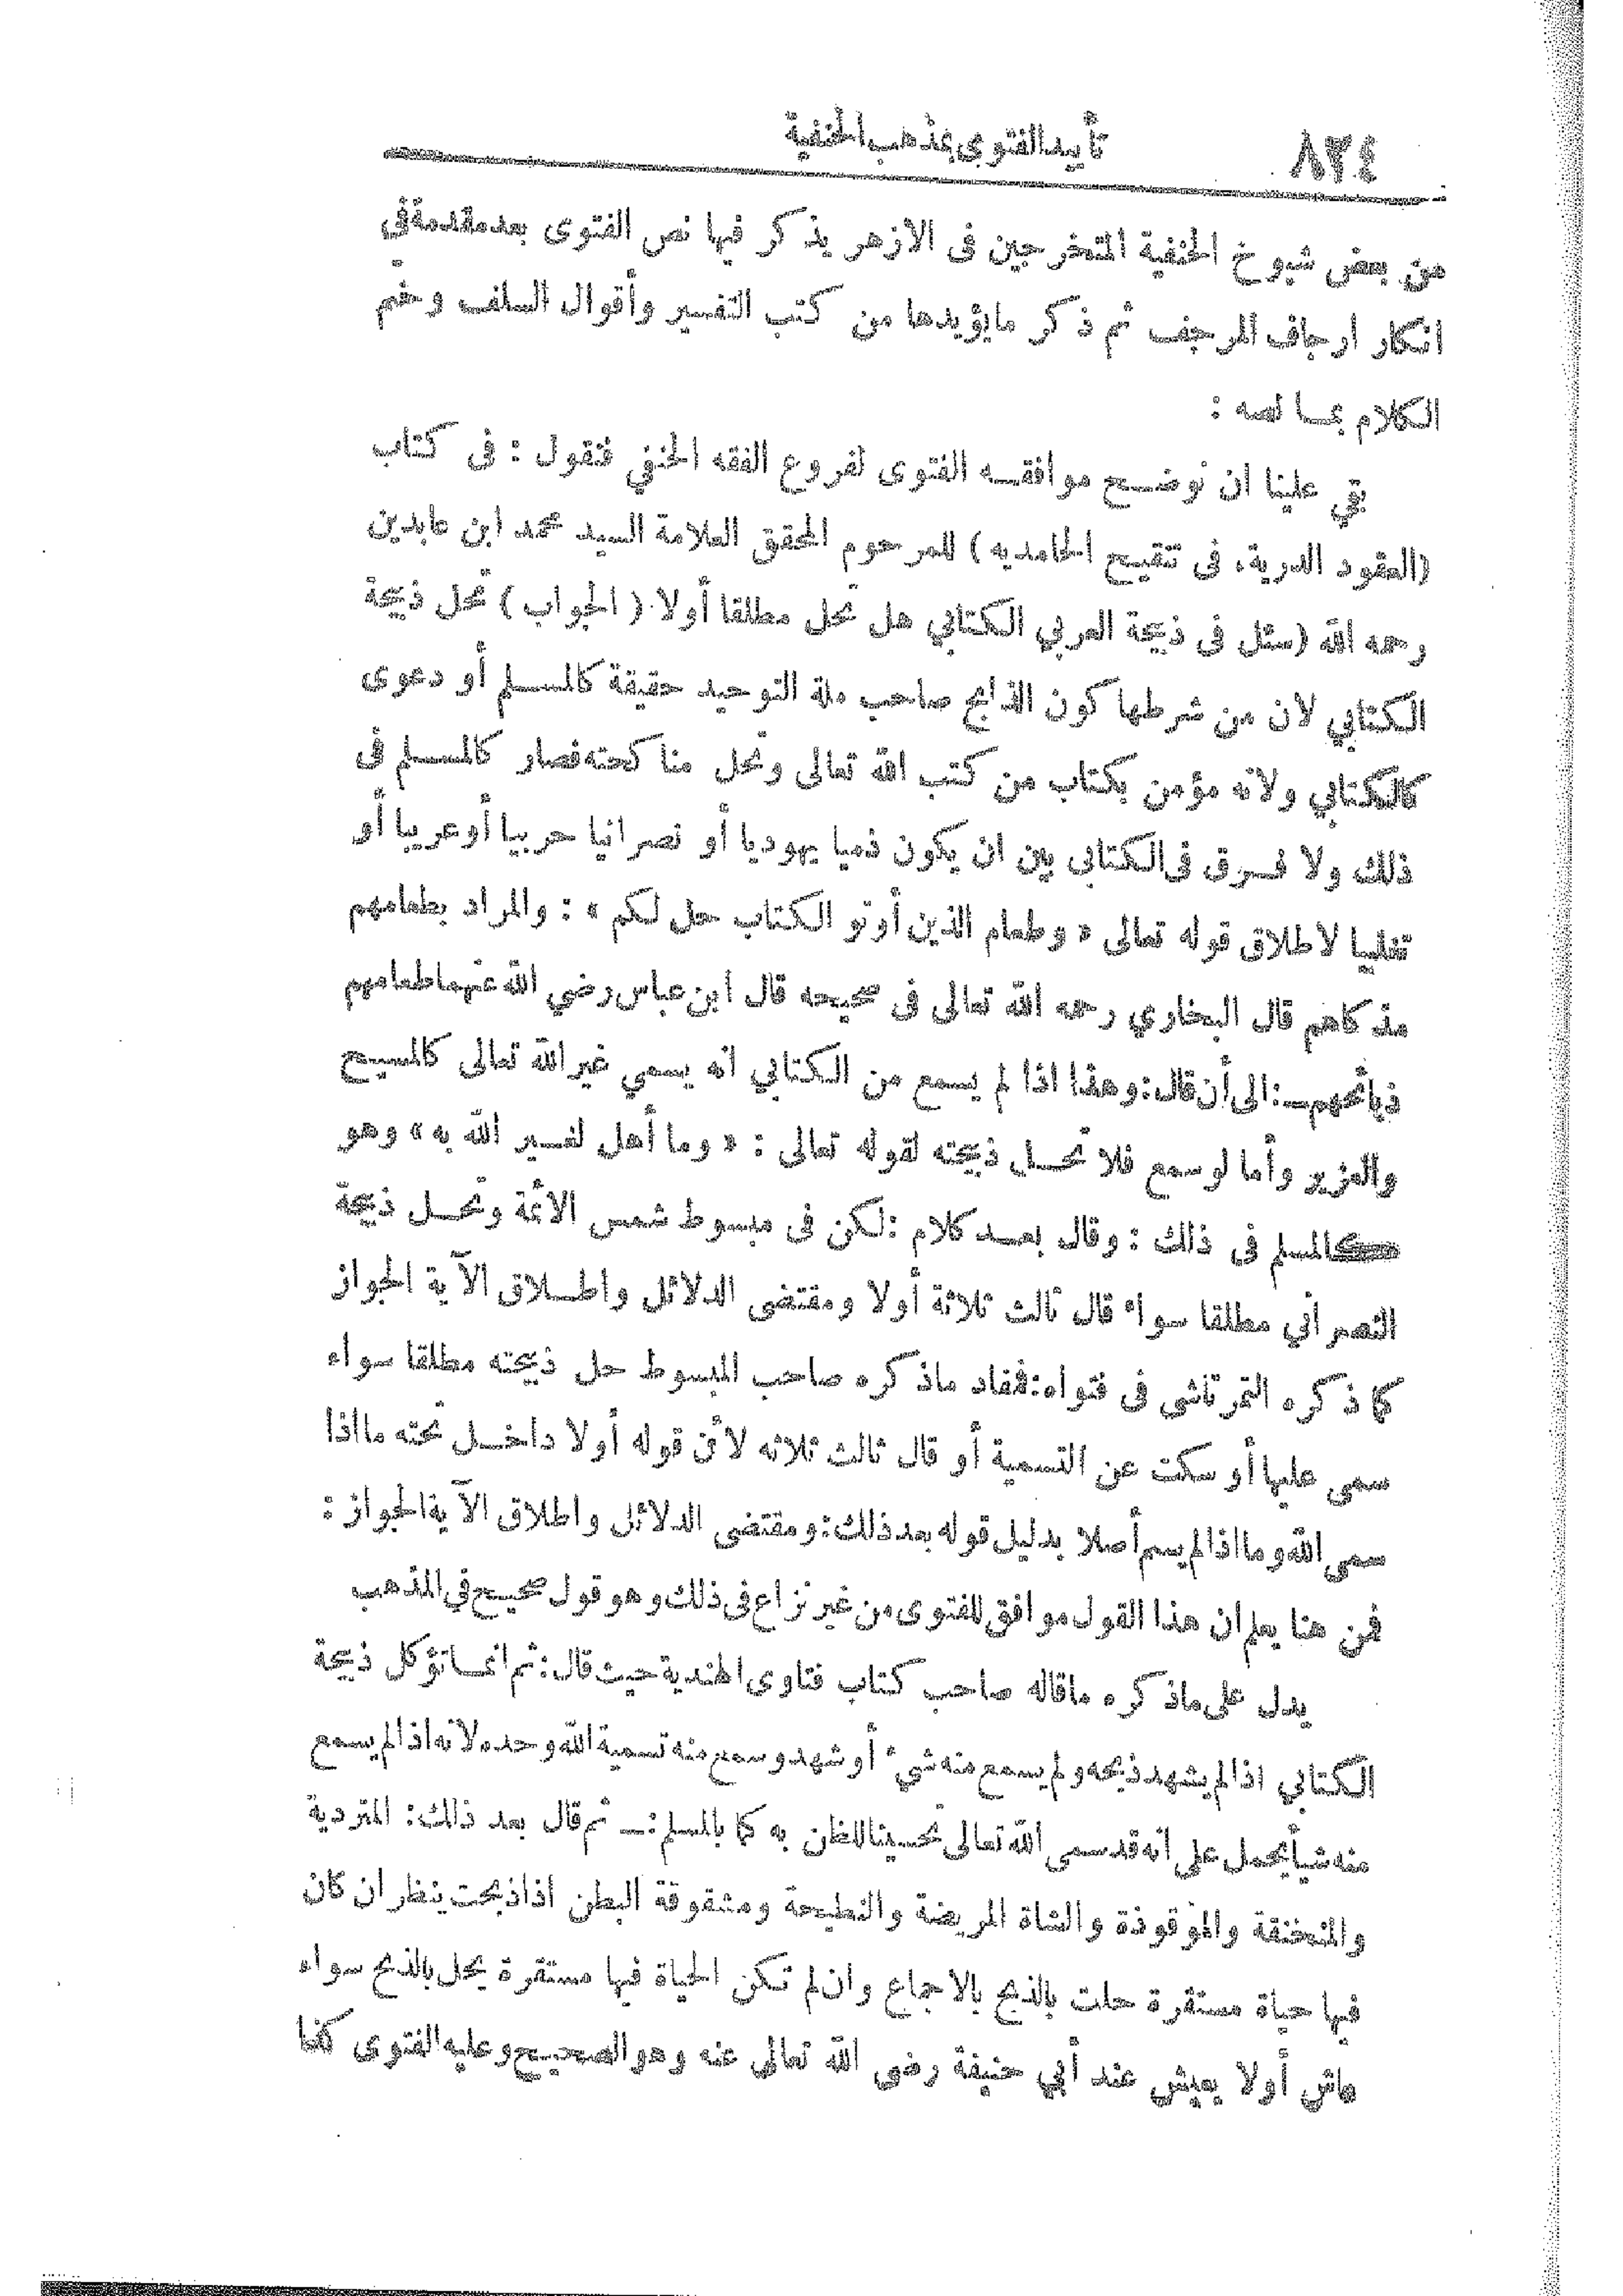 ٨٢٤
تأييد الفتوى بمذهب الحنفية
من بعض شيوخ الحنفية المتخرجين فى الازهر يذكر فيها نص الفتوى بعد مقدمة في
انكار ارجاف المرجف ثم ذكر مايؤيدها من كتب التفسير وأقوال السلف وختم
الكلام بما نصه :
بقي علينا ان نوضح موافقه الفتوى لفروع الفقه الحنفي فنقول : فى كتاب
(العقود الدرية، فى تنقيح الحامديه) للمرحوم المحقق العلامة السيد محمد ابن عابدين
رحمه الله (سئل فى ذبيحة العربي الكتابي هل تحل مطلقا أولا (الجواب) تحل ذبيحة
الكتابي لان من شرطها كون الذابح صاحب ملة التوحيد حقيقة كالمسلم أو دعوى
كالكتابي ولانه مؤمن بكتاب من كتب الله تعالى وتحل مناكحته فصار كالمسلم فى
ذلك ولا فرق فى الكتابى بين ان يكون ذميا يهوديا أو نصرانيا حربيا أو عربيا أو
تغلبيا لاطلاق قوله تعالى « وطعام الذين أوتو الكتاب حل لكم » : والمراد بطعامهم
مذكاهم قال البخاري رحمه الله تعالى فى صحيحه قال ابن عباس رضي الله عنهما طعامهم
ذبائحهم ــ: الى أن قال: وهذا اذا لم يسمع من الكتابي انه يسمي غير الله تعالى كالمسيح
والعزير وأما لو سمع فلا تحل ذبيحته لقوله تعالى : « وما أهل لغير الله به » وهو
كالمسلم فى ذلك : وقال بعد كلام : لكن فى مبسوط شمس الائمة وتحل ذبيحة
النصراني مطلقا سواء قال ثالث ثلاثة أولا ومقتضى الدلائل واطلاق الآية الجواز
كما ذكره التمرتاشى فى فتواه: فمفاد ماذكره صاحب المبسوط حل ذبيحته مطلقا سواء
سمى عليها أو سكت عن التسمية أو قال ثالث ثلاثه لأن قوله أولا داخل تحته مااذا
سمى الله وما اذا لم يسم أصلا بدليل قوله بعد ذلك: ومقتضى الدلائل واطلاق الآية الجواز :
فمن هنا يعلم ان هذا القول موافق للفتوى من غير نزاع فى ذلك وهو قول صحيح في المذهب
يدل على ماذكره ماقاله صاحب كتاب فتاوى الهندية حيث قال: ثم انما تؤكل ذبيحة
الكتابي اذا لم يشهد ذبحه ولم يسمع منه شيء أو شهد وسمع منه تسمية الله وحده لانه اذا لم يسمع
منه شيأ يحمل على انه قد سمى الله تعالى تحسينا للظن به كما بالمسلم :ــ ثم قال بعد ذلك: المتردية
والمنخنقة والموقوذة والشاة المريضة والنطيحة ومشقوقة البطن اذا ذبحت ينظر ان كان
فيها حياة مستقرة حلت بالذبح بالاجماع وان لم تكن الحياة فيها مستقرة يحل بالذبح سواء
عاش أولا يعيش عند أبي حنيفة رضى الله تعالى عنه وهو الصحيح وعليه الفتوى كذا